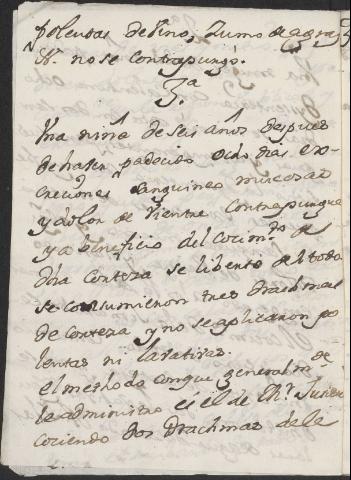 polentas de Vino, Zumo de agraz
N. no se contrapungó.
3.ª
Una niña de seis años despues
de haver padecido ocho dias ex-
creciones sanguineo mucosas
y dolor de Vientre contrapungue
y a beneficio del cocim.to de
dha Corteza se libertó del todo
se consumieron tres Drachmas
de corteza y no se aplicaron po
lentas ni lavativas.
el methodo con que generalm.te
la administro es el de
cociendo dos Drachmas de la